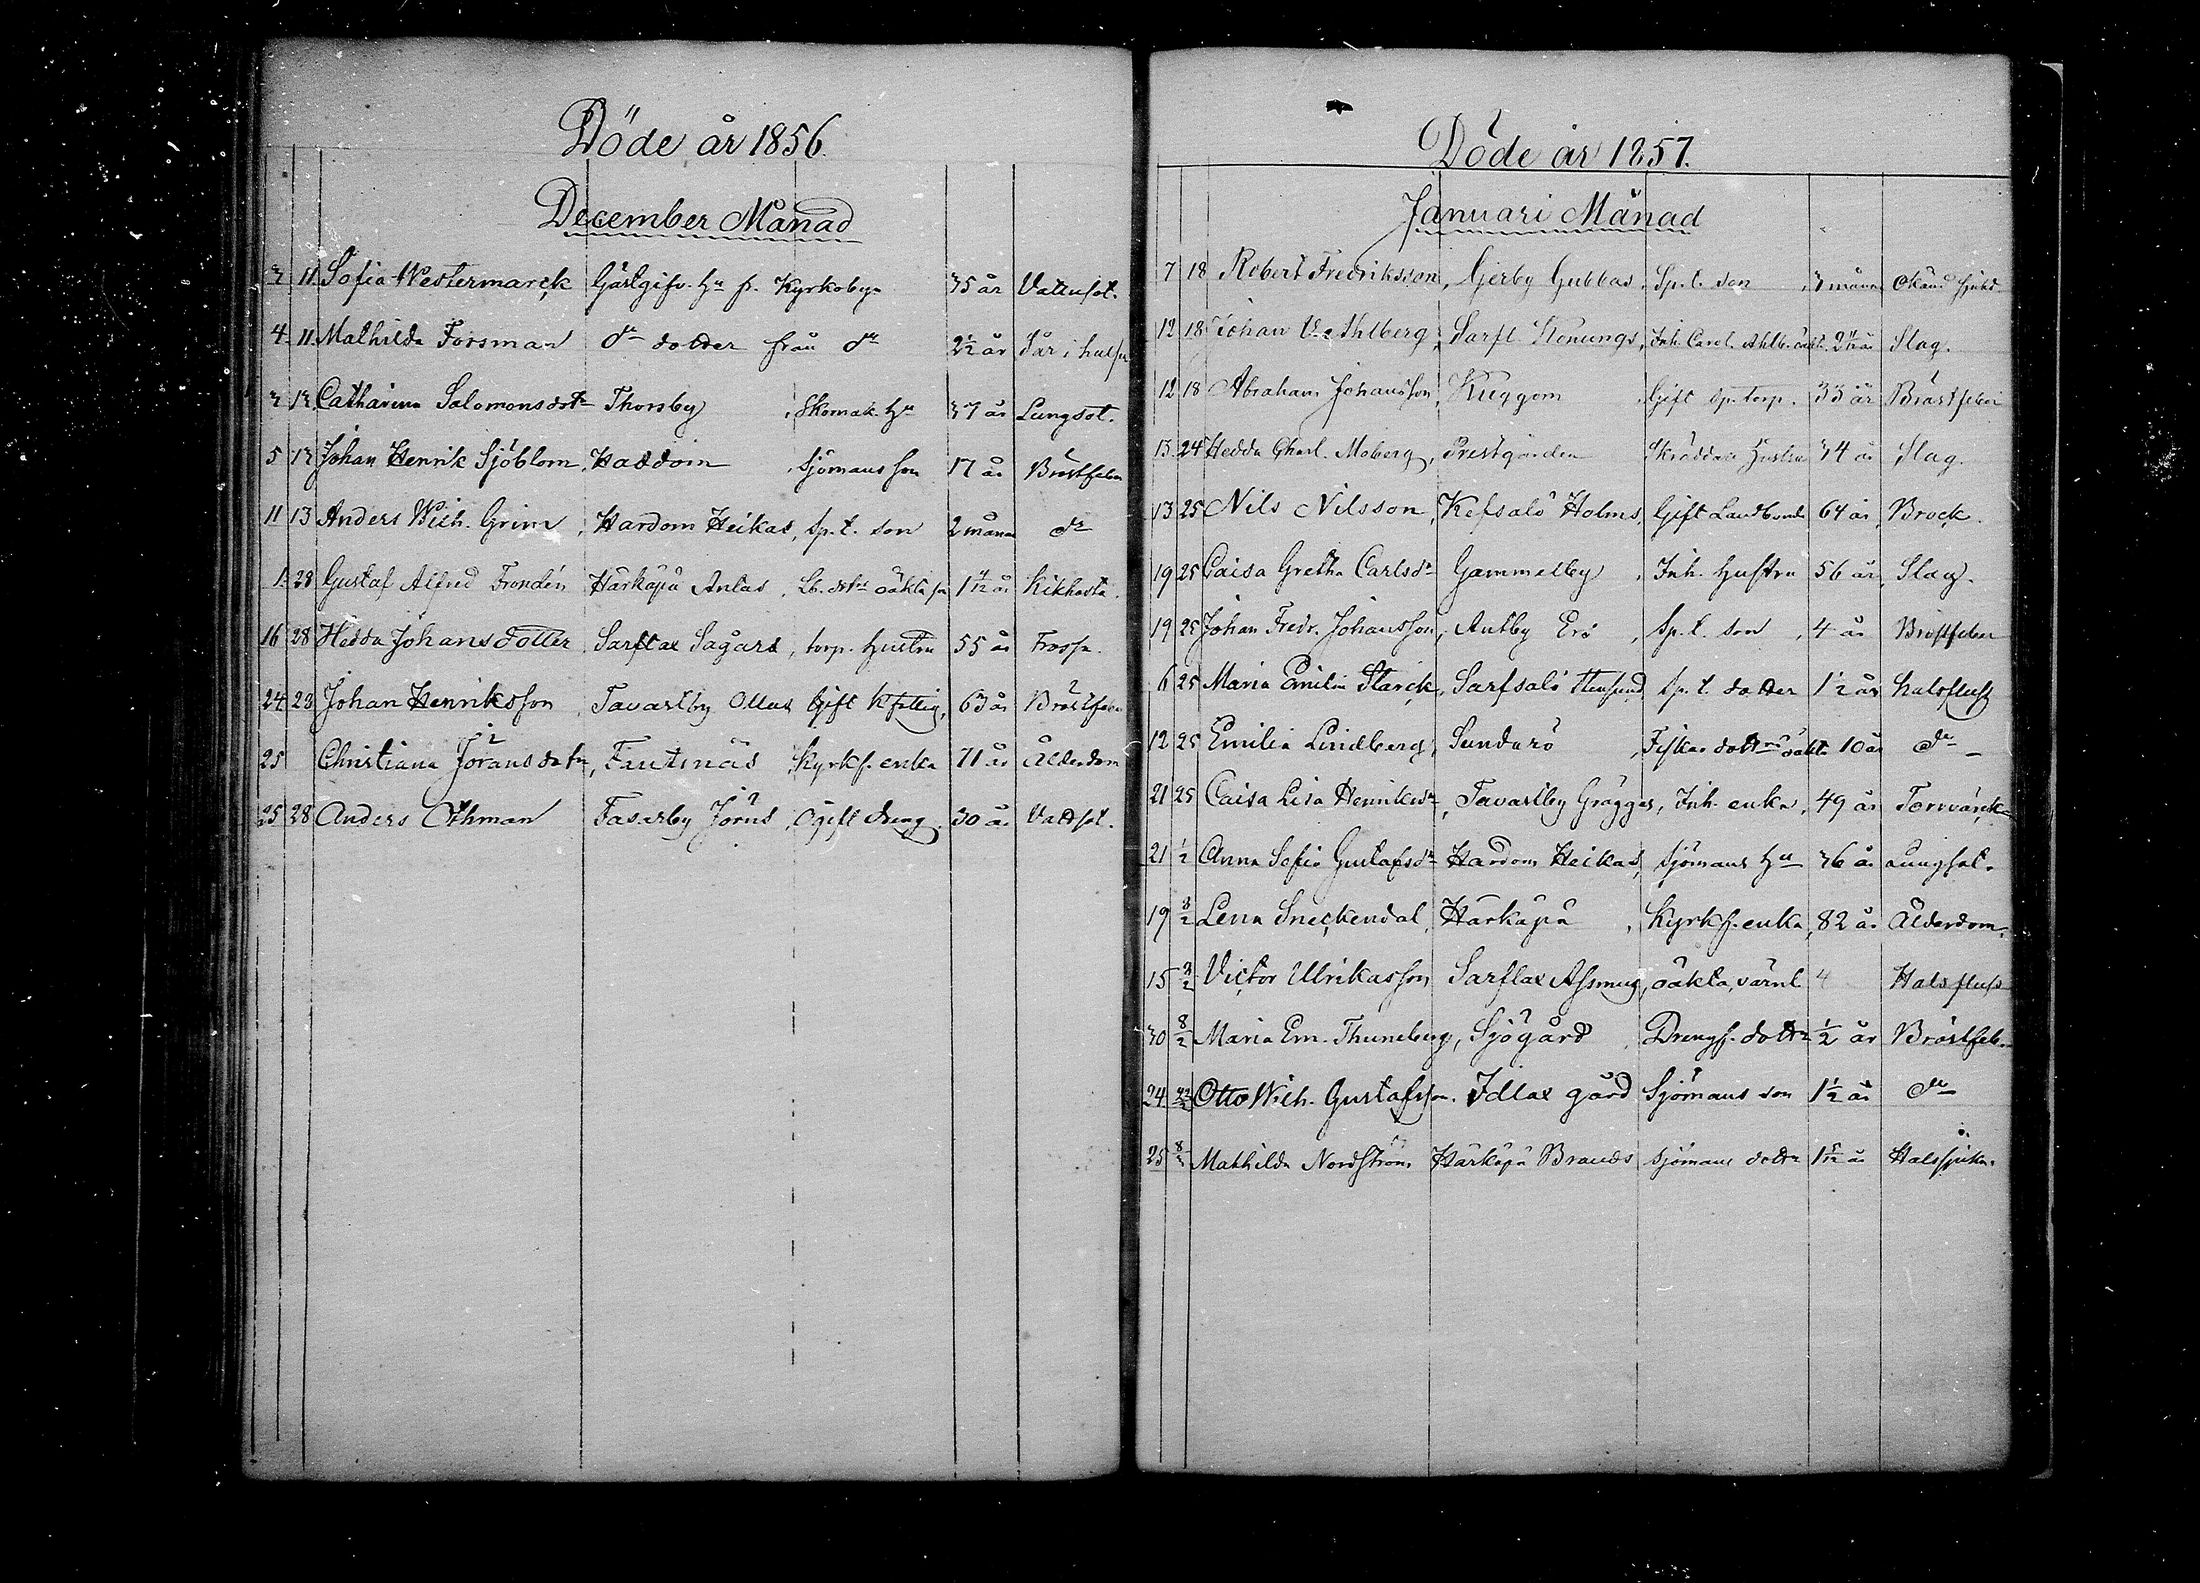 Döde år 1856.
December Månad
3 11 Sofia Westermarck Gästgifv. Hu fr. Kyrkoby 35 år Vattusot.
4 11 Mathilda Forsman do dotter från do 2½ år Sår i halsen
3 13 Catharina Salomonsdotr Thorsby, Skomak. Hu 37 år Lungsot.
5 13 Johan Henrik Sjöblom, Haddom, Sjömans son 17 år Bröstfeber
11 13 Anders Wilh. Grim, Hardom Heikas, Sp.t. son 2 mån do
1 28 Gustaf Alfred Frondén Härkäpä Antas, oäkta son 1 år Kikhosta.
16 28 Hedda Johansdotter Sarflax Sagars, torp. hustru 55 år Frossa.
24 28 Johan Henriksson Tavastby Ollas Gift Kfattig, 63 år Bröstfeber
25 Christiana Jöransdotr, Fantsnäs Kyrkf. enka 71 år Ålderdom
25 28 Anders Öhman Fasarby Jörns, Ogift dreng 30 år Vattsot.
Döde år 1857.
Januari Månad
7 18 Robert Fredriksson, Gerby Gubbas, Sp.t. son, 3 mån Okänd sjukd
12 18 Johan Ahlberg, Sarfl. Konungs, Inh. Carol. Ahlb. oäkt. 2 år Slag.
12 18 Abraham Johansson, Kuggom, Gift sp. torp. 33 år Bröstfeber
13 24 Hedda Charl. Moberg, Prestgården Skräddar Hustru 34 år Slag.
13 25 Nils Nilsson, Kefsalö Holms, Gift Landbonde 64 år, Brock.
19 25 Caisa Gretha Carlsdr Gammelby, Inh. Hustru 56 år, Slag.
19 25 Johan Fredr. Johansson, Antby Ers, Sp.t. son, 4 år Bröstfeber
6 25 Maria Emilia Starck, Sarfsalö Stensund, Sp.t. dotter 1½ år halsfluss
12 25 Emilia Lindberg, Sundarö, Fiskar dottrs oäkt. 10 år do
21 25 Caisa Lisa Henriksdr, Tavastby Gräggas, Inh. enka, 49 år Torrvärk
21 ½ Anna Sofia Gustafsdr Hardom Heikas, Sjömans Hu 36 år Lungsot.
19 8/2 Lena Sneckendal, Härkäpä, Kyrkf. enka, 82 år Ålderdom.
15 3/2 Victor Ulrikasson Sarflax Assmus, oäkta, värnl 4 Halsfluss
30 8/2 Maria Em. Thuneberg, Sjögård, Drengs. dotter ½ år Bröstfeb.
24 Otto Wilh. Gustafsson. Idlax gård Sjömans son 1½ år do
25 8/2 Mathilda Nordström Härkäpä Brands Sjömans dotter 1 år Halssjuka.